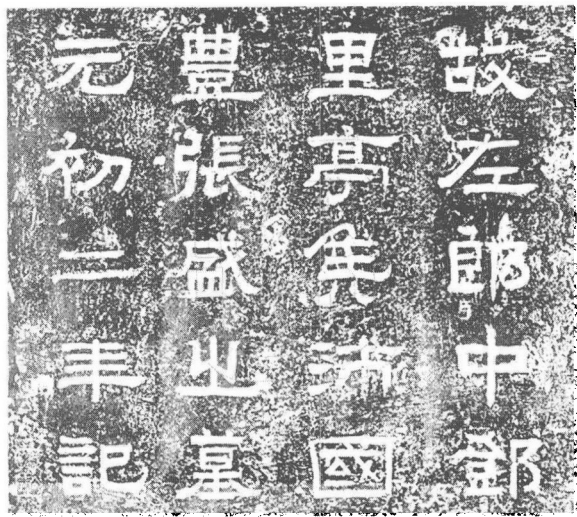 故左郎中鄧
里亭侯沛國
豊張盛之墓
元初二年記